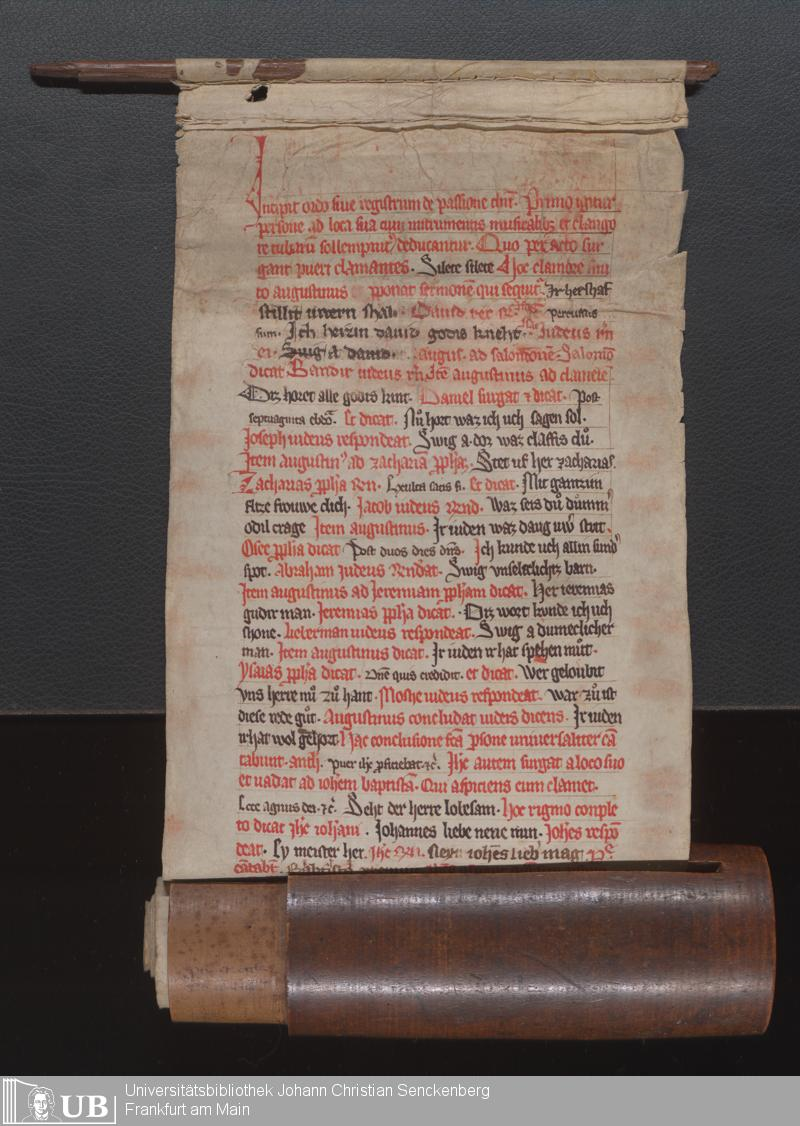 Incipit ordo siue registrum de passione dni. Primo igitur
persone ad loca sua cum instrumentis musicalibz et clango
re tubarū sollempnit᷑ deducantur. Quo peracto sur
gant pueri clamantes. Silete silete Hoc clamore fini
to augustinus pponat sermonē qui sequit᷑. Ir herschaf
stillit uwern shal. Dauid percussus
sum. Ich heizin dauid godis kneht. Iudeus
Swig a dauid. augus. ad salomonē. Salomō
dicat iudeus augustinus ad danielē
Diz horet alle godis kint. Daniel surgat ⁊ dicat. Post
septuaginta ebdō. Et dicat. Nů hort waz ich uch sagen sol.
Joseph iudeus respondeat. Swig a doz waz claffis dů.
Item augustin᷒ ad zachariā ppħā. Stet uf her zacharias.
Zacharias ppħa Ren. Exulta satis fi. Et dicat. Mit ganzim
flize frouwe dich. Jacob iudeus Rend. Waz seis dů dům̄
odil crage Item augustinus. Ir iuden waz daug uw̄ strit.
Osee ppħa dicat Post duos dies dn̄s. Ich kunde uch allin sund᷑
spot. Abraham Iudeus Rendeat. Swig vnselklichz barn.
Item augustinus ad Jeremiam ppħam dicat. Her ieremias
gudir man. Jeremias ppħa dicat. Diz wort kunde ich uch
schone. Lieberman iudeus respondeat. Swig a dumeclicher
man. Item augustinus dicat. Ir iuden ir hat spehen můt.
Ysaias ppħa dicat. Dn̄e quis credidit. et dicat. Wer geloubit
vns herre nů zů hant. Moshe iudeus respondeat. War zů ist
diese rede gůt. Augustinus concludat iudeis dicens. Ir iuden
ir hat wol gehort. Hac conclusione fcā psone uniuersaliter cā
tabunt. anth. Puer iħc pficiebat. ⁊c̄. Iħc autem surgat a loco suo
et uadat ad iohem baptistā. Qui aspiciens eum clamet.
Ecce agnus dei. ⁊c̄. Seht der herre lobesam. Hoc rigmo conple
to dicat iħc ioħani. Johannes liebe neue min. Joħes respō
deat. Ey meister her. Iħc Ren. Neyn ioħes lieb mag
cātabt.
Universitätsbibliothek Johann Christian Senckenberg
Frankfurt am Main
UB